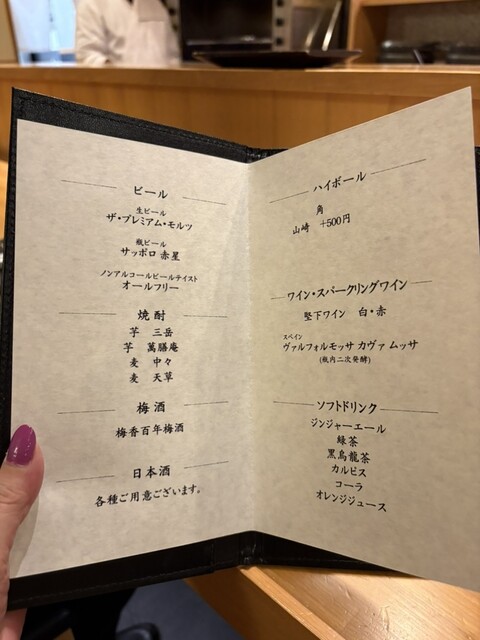 ビール
生ビール
ザ・プレミアム・モルツ
瓶ビール
サッポロ 赤星
ノンアルコールビールテイスト
オールフリー
焼酎
芋 三岳
芋 萬膳庵
麦 中々
麦 天草
梅酒
梅香百年梅酒
日本酒
各種ご用意ございます。
ハイボール
角
山崎 +500円
ワイン・スパークリングワイン
堅下ワイン 白・赤
スペイン
ヴァルフォルモッサ カヴァ ムッサ
(瓶内二次発酵)
ソフトドリンク
ジンジャーエール
緑茶
黒烏龍茶
カルピス
コーラ
オレンジジュース